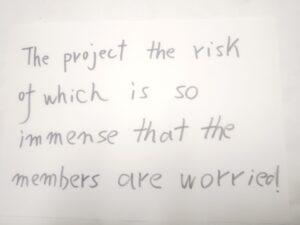 The project the risk
of which is so
immense that the
members are worried